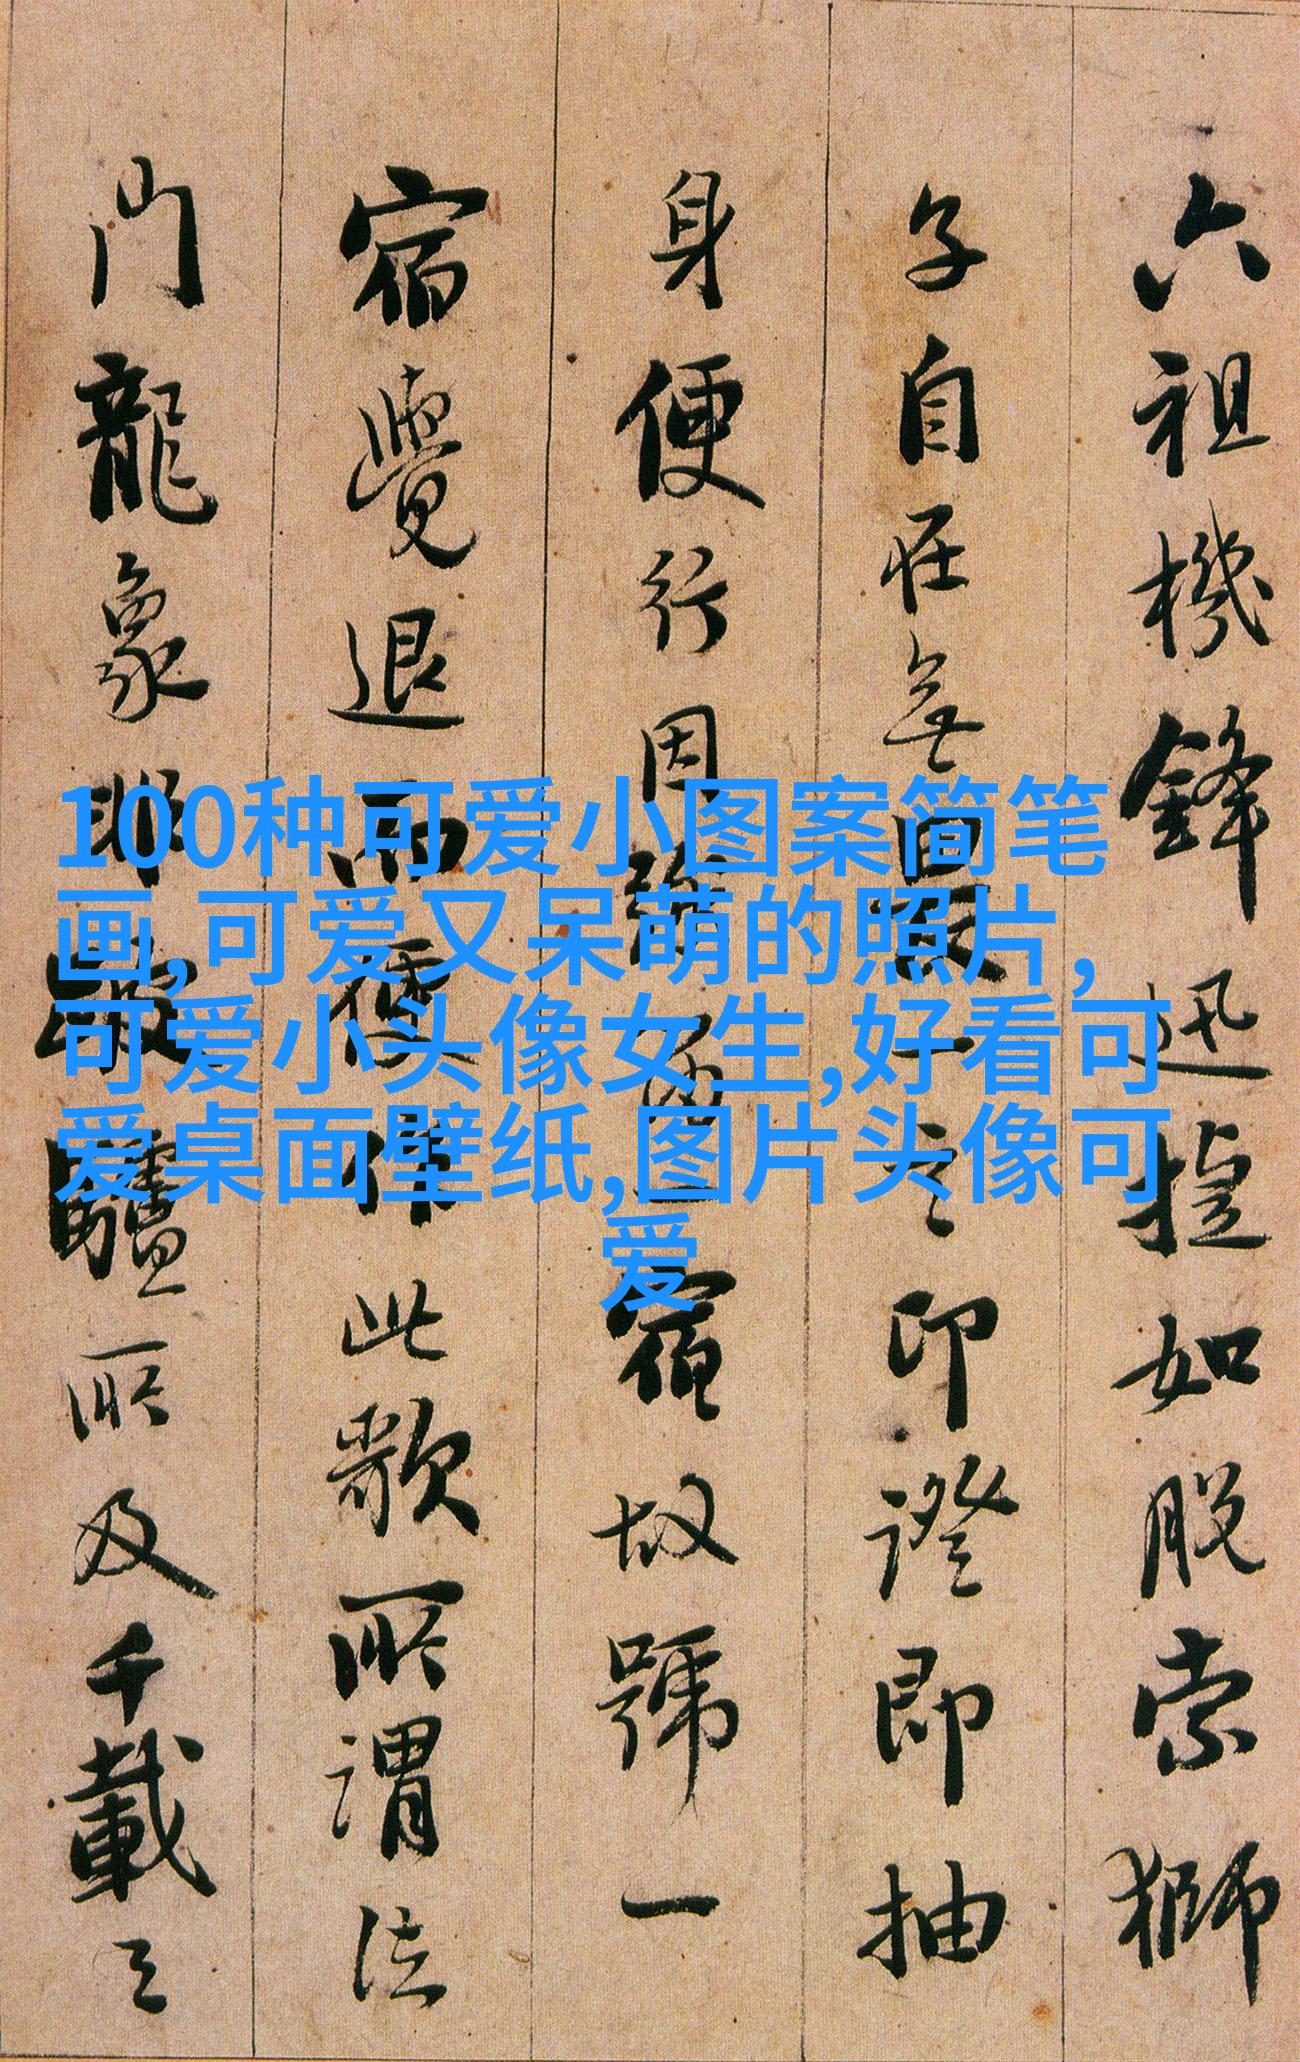 六祖機鋒迅捷如脫索獅
子自在無一印證即抽
身便行因強留一宿故號一
宿覺退而作此歌所謂法
門龍象驢所及千載之
100种可爱小图案简笔
画,可爱又呆萌的照片,
可爱小头像女生,好看可
爱桌面壁纸,图片头像可
爱